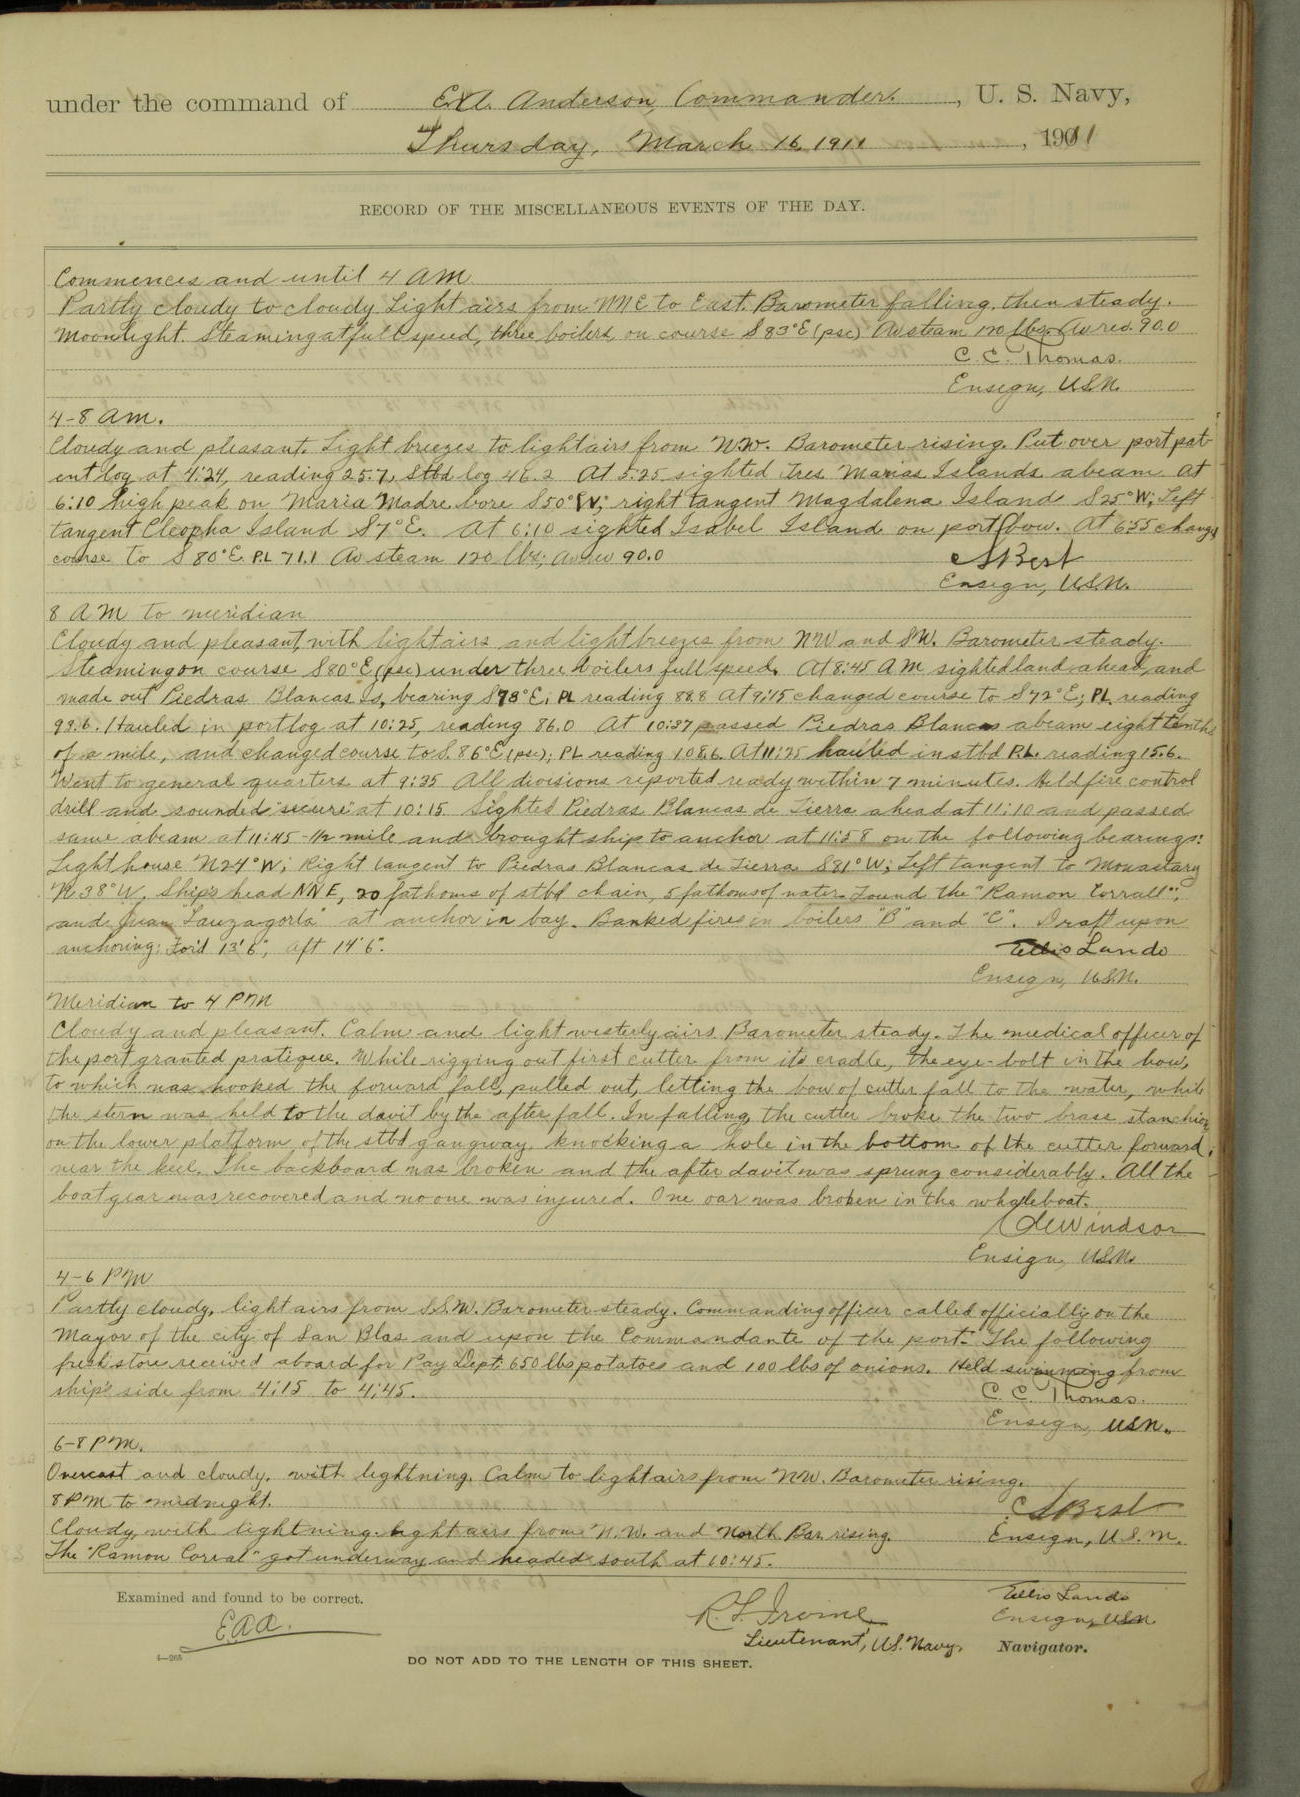 under the command of E.A. Anderson, Commander. , U. S. Navy,
Thursday, March 16, 1911 , 1911
RECORD OF THE MISCELLANEOUS EVENTS OF THE DAY.
Commences and until 4 AM
Partly cloudy to cloudy Light airs from NNE to East. Barometer falling, then steady.
Moonlight. Steaming at full speed, three boilers, on course S 83°E (psc) Av steam 120 lbs. Av rev. 90.0
C. C. Thomas.
Ensign, U.S.N.
4-8 am.
Cloudy and pleasant. Light breezes to light airs from N.W. Barometer rising. Put over port pat-
ent log at 4:24, reading 25.7, Stbd log 46.2 At 5:25 sighted Tres Marias Islands abeam At
6:10 high peak on Maria Madre bore S 50° W; right tangent Magdalena Island S 25° W; Left
tangent Cleopha Island S 7° E. At 6:10 sighted Isabel Island on port bow. At 6:55 changed
course to S 80° E. P.L 71.1 Av steam 120 lbs; Av rev 90.0
Best
Ensign, U.S.N.
8 AM to meridian
Cloudy and pleasant, with light airs and light breezes from NW and SW. Barometer steady.
Steaming on course S 80° E (psc) under three boilers full speed. At 8:45 AM sighted land ahead, and
made out Piedras Blancas Is, bearing S 73° E; PL reading 88.8 At 9:15 changed course to S 72° E; PL. reading
93.6. Hauled in port log at 10:25, reading 86.0 At 10:37 passed Piedras Blancas abeam eight tenths
of a mile, and changed course to S. 86° E (psc); PL reading 108.6. At 11:25 hauled in stbd P.L. reading 15.6.
Went to general quarters at 9:35 All divisions reported ready within 7 minutes. Held fire control
drill and sounded "secure" at 10:15 Sighted Piedras Blancas de Tierra ahead at 11:10 and passed
same abeam at 11:45 - 1/2 mile and brought ship to anchor at 11:58 on the following bearings:
Light house N 24° W; Right tangent to Piedras Blancas de Tierra S 81° W; Left tangent to Monastary
N 38° W. Ship's head NNE, 20 fathoms of stbd chain, 5 fathoms of water. Found the "Ramon Corrall",
and "Juan Lauzagorta" at anchor in bay. Banked fires in boilers "B" and "C". Draft upon
anchoring: For'd 13' 6", aft 14' 6".
Ellis Lando
Ensign, U.S.N.
Meridian to 4 PM
Cloudy and pleasant. Calm and light westerly airs. Barometer steady. The medical officer of
the port granted pratique. While rigging out first cutter from its cradle, the eye-bolt in the bow,
to which was hooked the forward fall, pulled out, letting the bow of cutter fall to the water, while
the stern was held to the davit by the after fall. In falling, the cutter broke the two brass stanchions
on the lower platform of the stbd gangway, knocking a hole in the bottom of the cutter forward,
near the keel. The backboard was broken and the after davit was sprung considerably. All the
boat gear was recovered and no one was injured. One oar was broken in the whaleboat.
Windsor
Ensign, U.S.N.
4-6 PM
Partly cloudy, light airs from S.S.W. Barometer steady. Commanding officer called officially on the
Mayor of the city of San Blas and upon the Commandante of the port. The following
fresh stores received aboard for Pay Dept: 650 lbs potatoes and 100 lbs of onions. Held swimming from
ship's side from 4:15 to 4:45.
C. C. Thomas.
Ensign, U.S.N.
6-8 P.M.
Overcast and cloudy, with lightning. Calm to light airs from N.W. Barometer rising.
8 PM to midnight.
Best
Cloudy, with lightning. Light airs from N.W. and North. Bar. rising.
Ensign, U.S.N.
The "Ramon Corral" got underway and headed south at 10:45.
Examined and found to be correct.
E.A.A.
R. F. Irvine
Lieutenant, U.S. Navy,
Ellis Lando
Ensign, U.S.N.
Navigator.
4—265
DO NOT ADD TO THE LENGTH OF THIS SHEET.